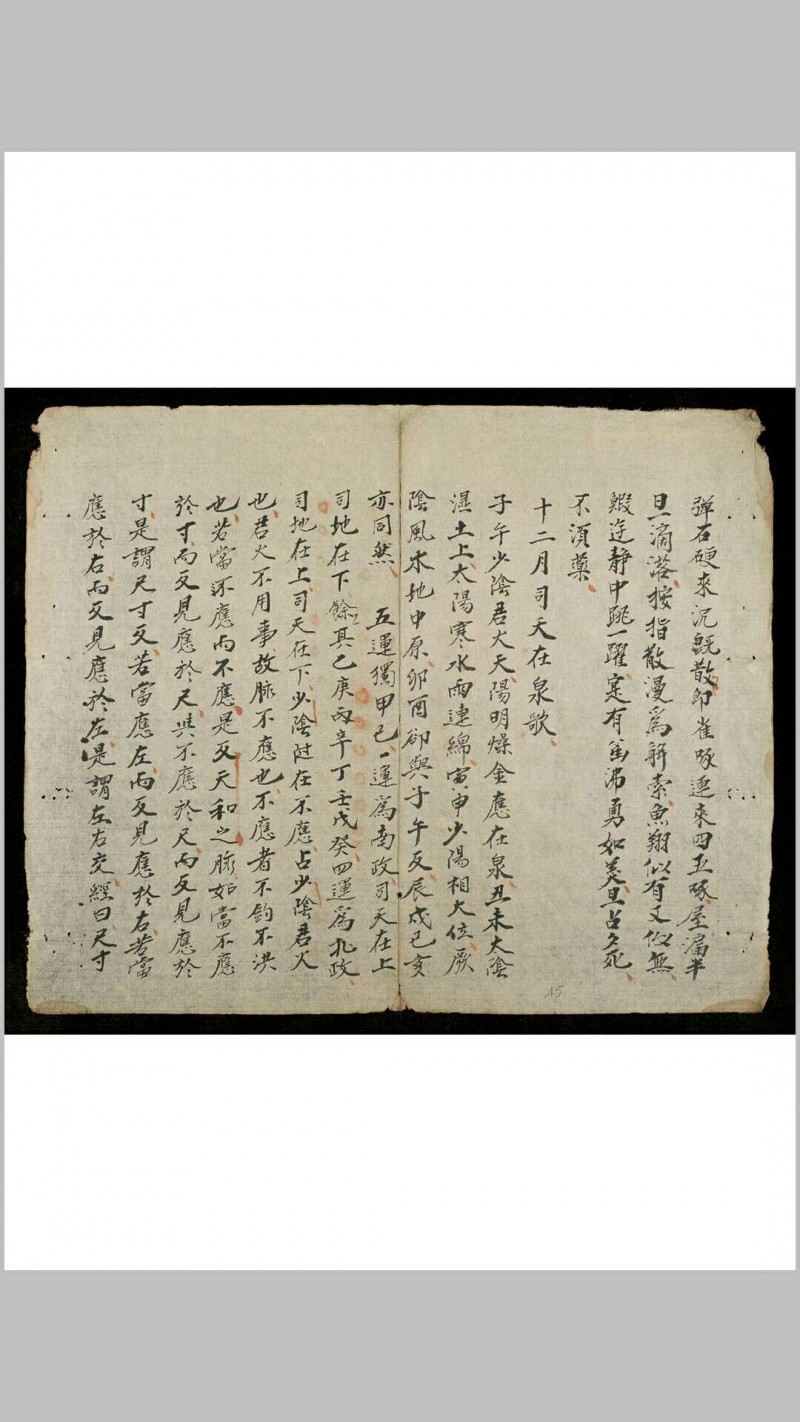 弹石硬來沉既散即雀啄連來四五啄屋漏半
旦一滴落按指散漫為解索魚翔似有又似無
鰕迬静中跳一躍寔有釡沸勇如羙旦占夕死
不湏藥
十二月司天在泉歌
子午少陰君火天陽明燥金應在泉丑未太陰
濕土上太陽寒水雨連綿寅申少陽相火位厥
陰風木地中原卯酉卻與子午反辰戌巳亥
亦同然 五運獨甲己一運為南政司天在上
司地在下餘其乙庚丙辛丁壬戊癸四運為北政
司地在上司天在下少陰隨在不應占少陰君火
也君火不用事故脉不應也不應者不鈎不洪
也若當不應而不應是反天和之脉如當不應
於寸而反見應於尺共不應於尺而反見應於
寸是謂尺寸反若當應左而反見應於右若當
應於右而反見應於左是謂左右交經曰尺寸
15